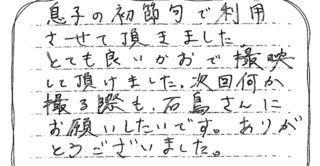 息子の初節句で利用
させて頂きました。
とても良いかおで撮映
して頂けました。次回何か
撮る際も、石鳥さんに
お願いしたいです。ありが
とうございました。